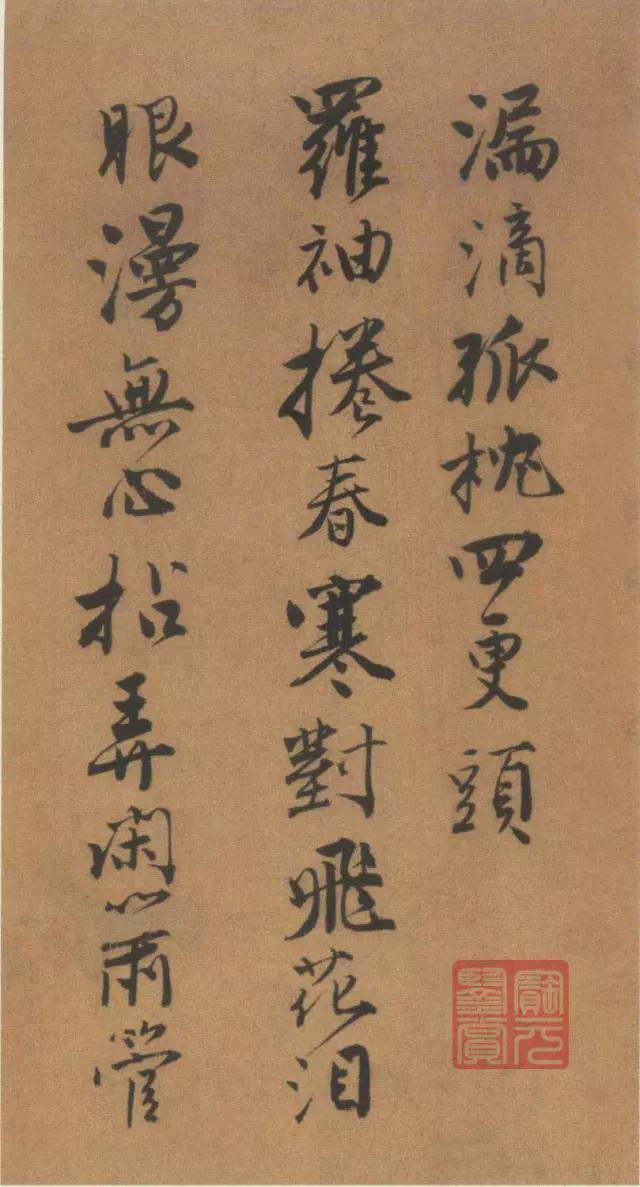 漏滴孤枕四更頭
羅袖捲春寒對飛花泪
眼漫無心拈弄閑簫管
寶元鑒賞